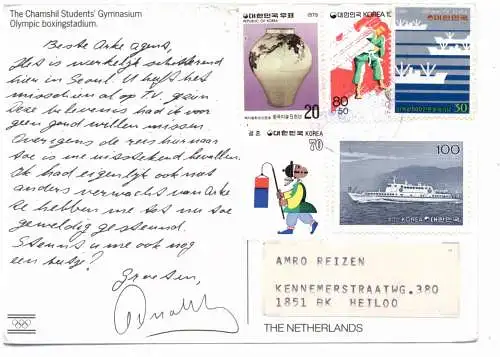 The Chamshil Students' Gymnasium
Olympic boxingstadium.
Beste Arke agent,
Het is werkelijk schitterend
hier in Seoul. U heeft het
misschien al op TV. gezien
Deze belevenis had ik voor
geen goud willen missen
Overigens de reis hiernaar
toe is me uitstekend bevallen.
Ik had eigenlijk ook niet
anders verwacht van Arke
Ze hebben me tot nu toe
geweldig gesteund.
Steunt u me ook nog
een beetje?
Groeten,
대한민국 우표 1979
REPUBLIC OF KOREA
20
대한민국 KOREA
80
+50
대한민국
REPUBLIC OF KOREA
30
대한민국 KOREA
70
100
대한민국 KOREA
AMRO REIZEN
KENNEMERSTRAATWG.380
1851 BK HEILOO
THE NETHERLANDS